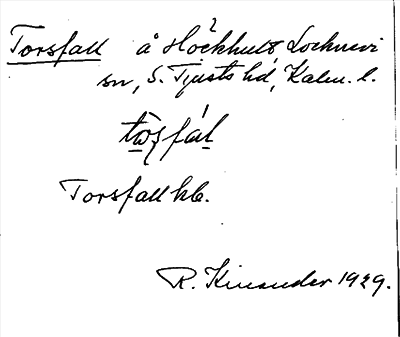 Torsfall å Höckhult Locknevi
sn, S. Tjusts hd, Kalm. l.
Torsfall hb.
R. Kinander 1929.